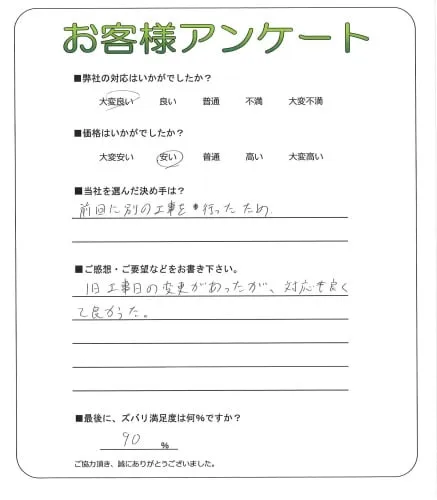 お客様アンケート
■弊社の対応はいかがでしたか？
大変良い 良い 普通 不満 大変不満
■価格はいかがでしたか？
大変安い 安い 普通 高い 大変高い
■当社を選んだ決め手は？
前回に別の工事を行ったため
■ご感想・ご要望などをお書き下さい。
1日工事日の変更があったが、対応も良く
て良かった。
■最後に、ズバリ満足度は何%ですか？
90 %
ご協力頂き、誠にありがとうございました。